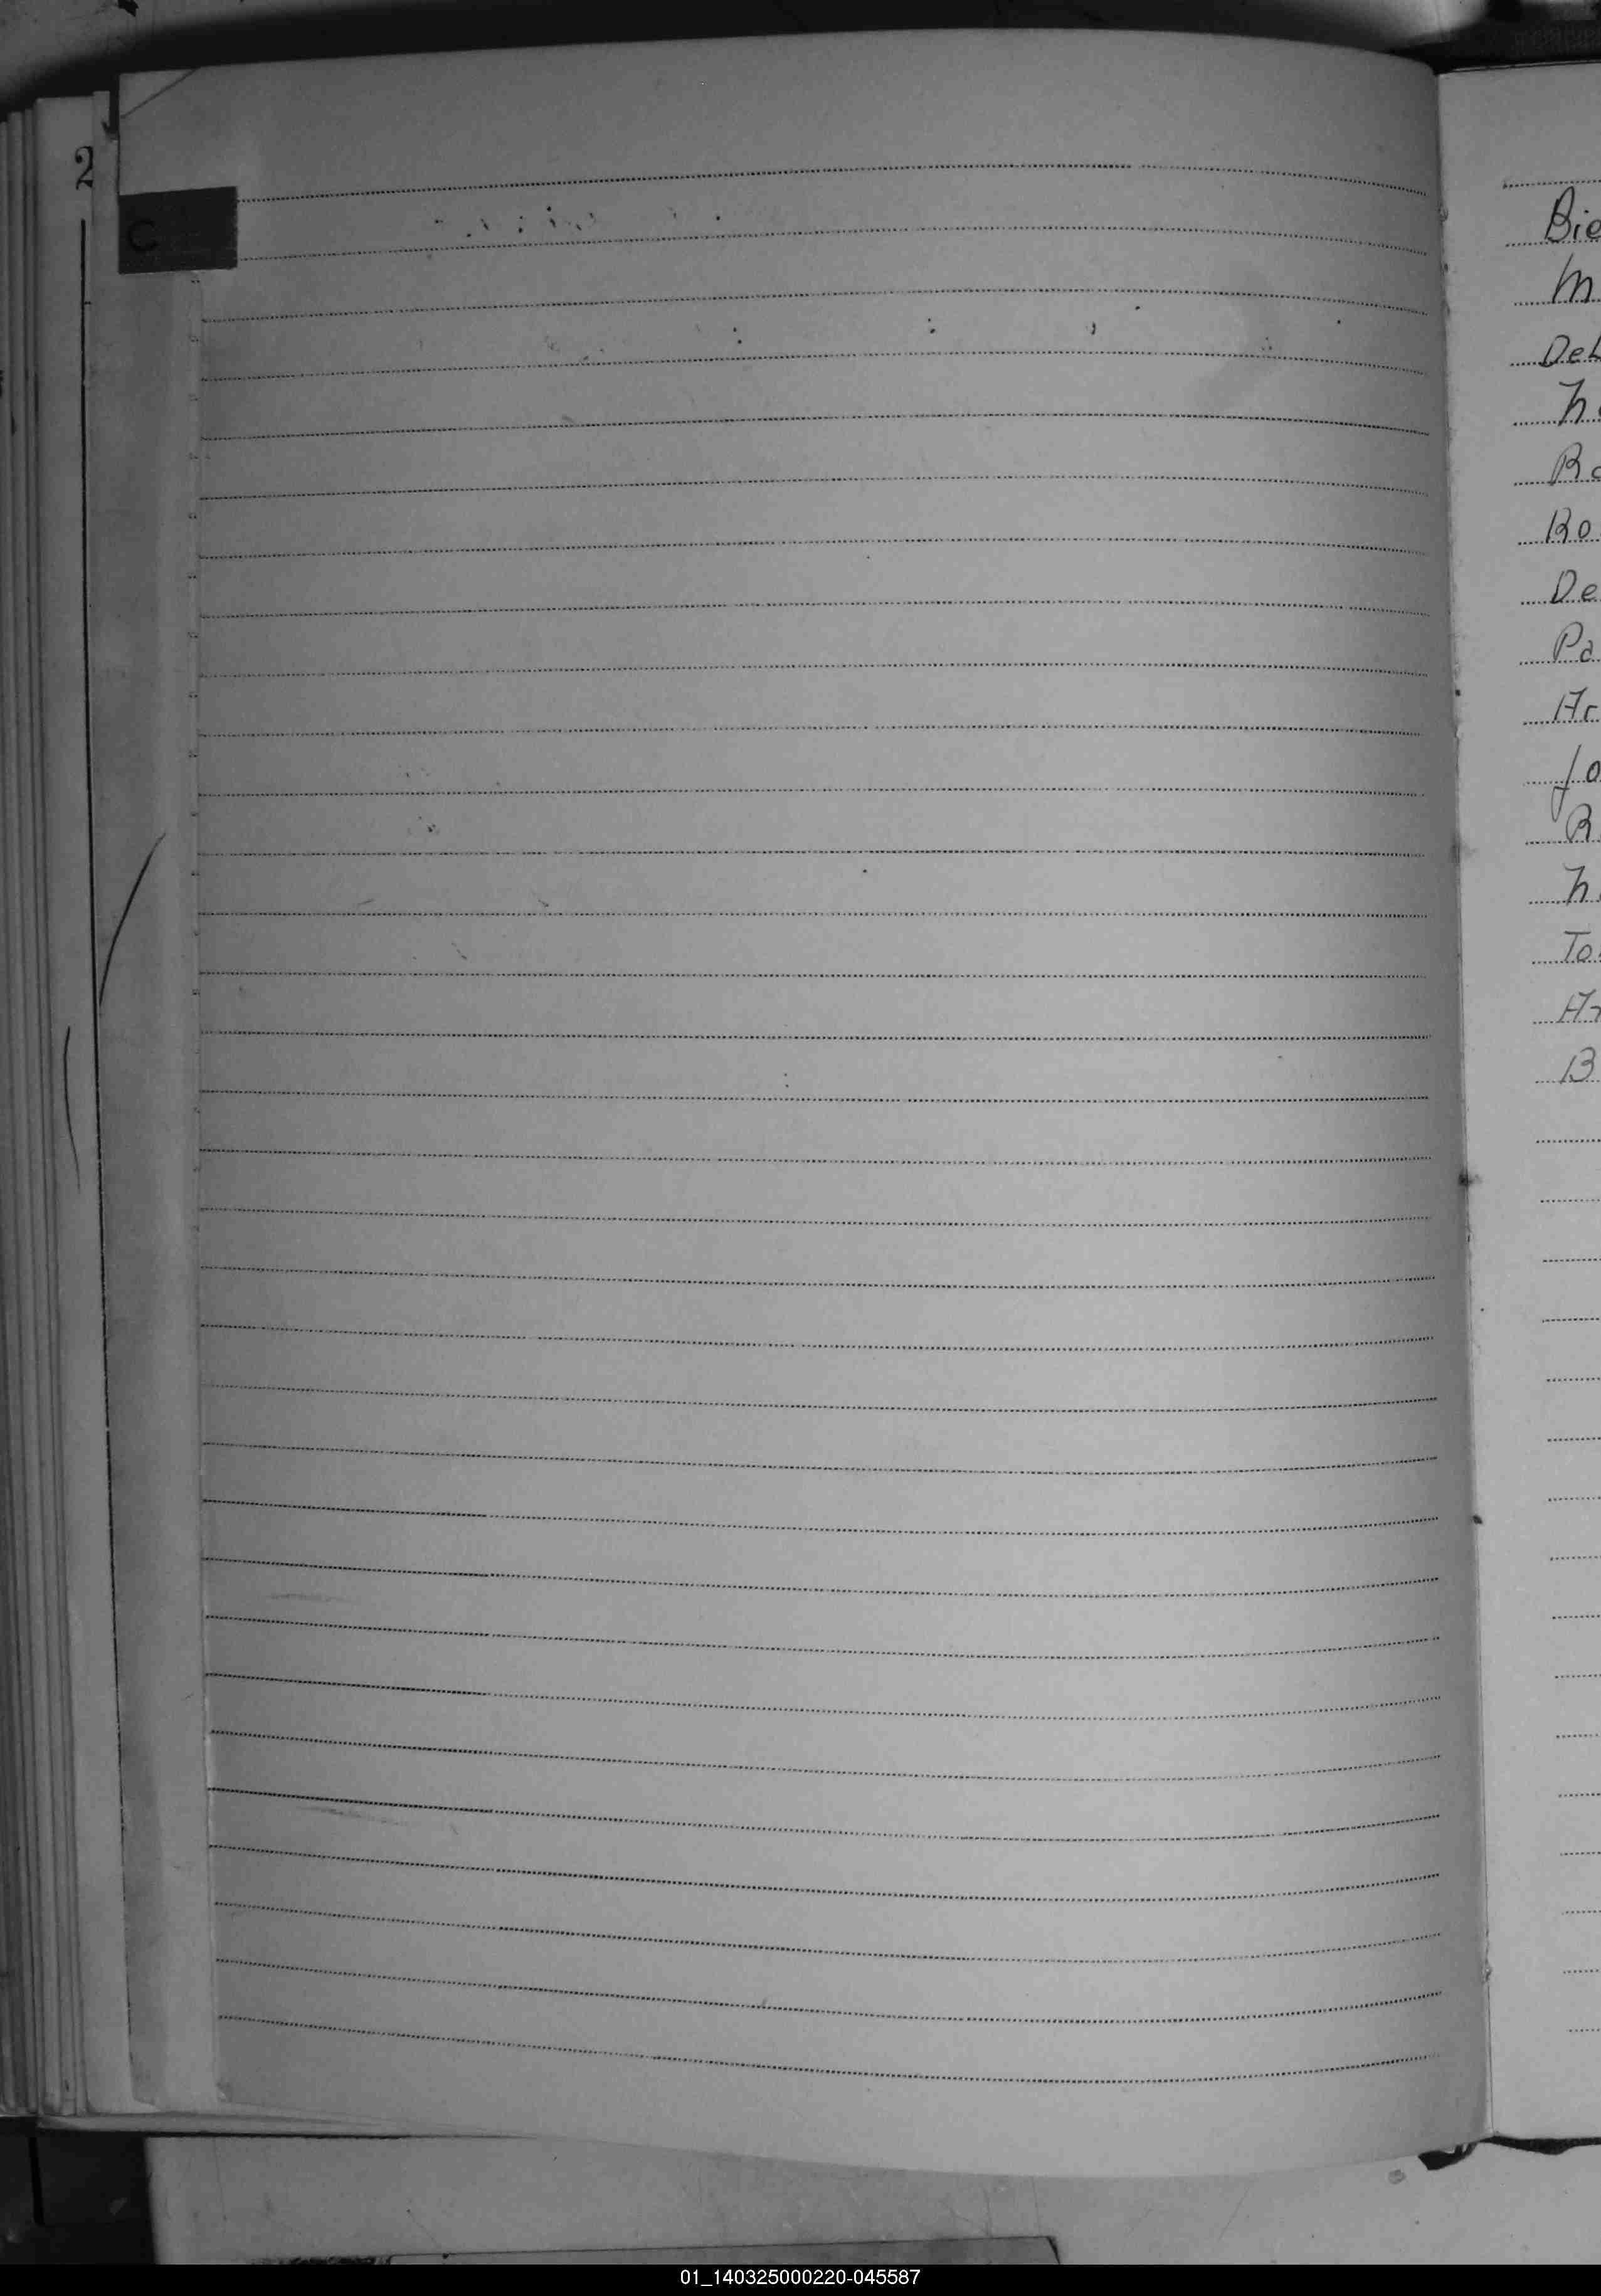 2
C
Bie
M
Deb
h
Ro
Ro
De
Pa
Ar
Jo
R
h
To
Ar
B
01_140325000220-045587